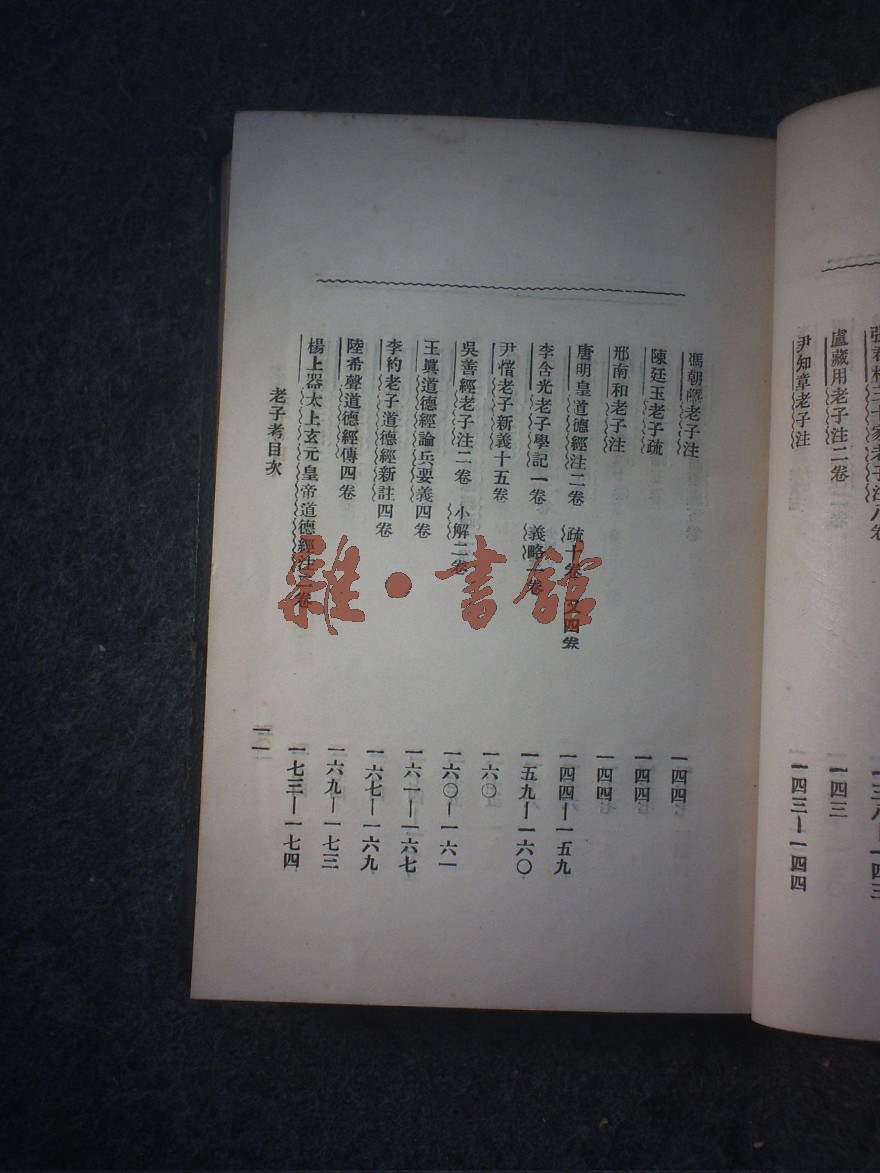 盧藏用老子注二卷
一四三
尹知章老子注
一四三—一四四
馮朝隱老子注
一四四
陳廷玉老子疏
一四四
邢南和老子注
一四四
唐明皇道德經注二卷 疏十卷 又四卷
一四四—一五九
李含光老子學記一卷 義略一卷
一五九—一六〇
尹愔老子新義十五卷
一六〇
吳善經老子注二卷 小解二卷
一六〇—一六一
王眞道德經論兵要義四卷
一六一—一六七
李約老子道德經新註四卷
一六七—一六九
陸希聲道德經傳四卷
一六九—一七三
楊上器太上玄元皇帝道德經注二卷
一七三—一七四
老子考目次
雜·書館